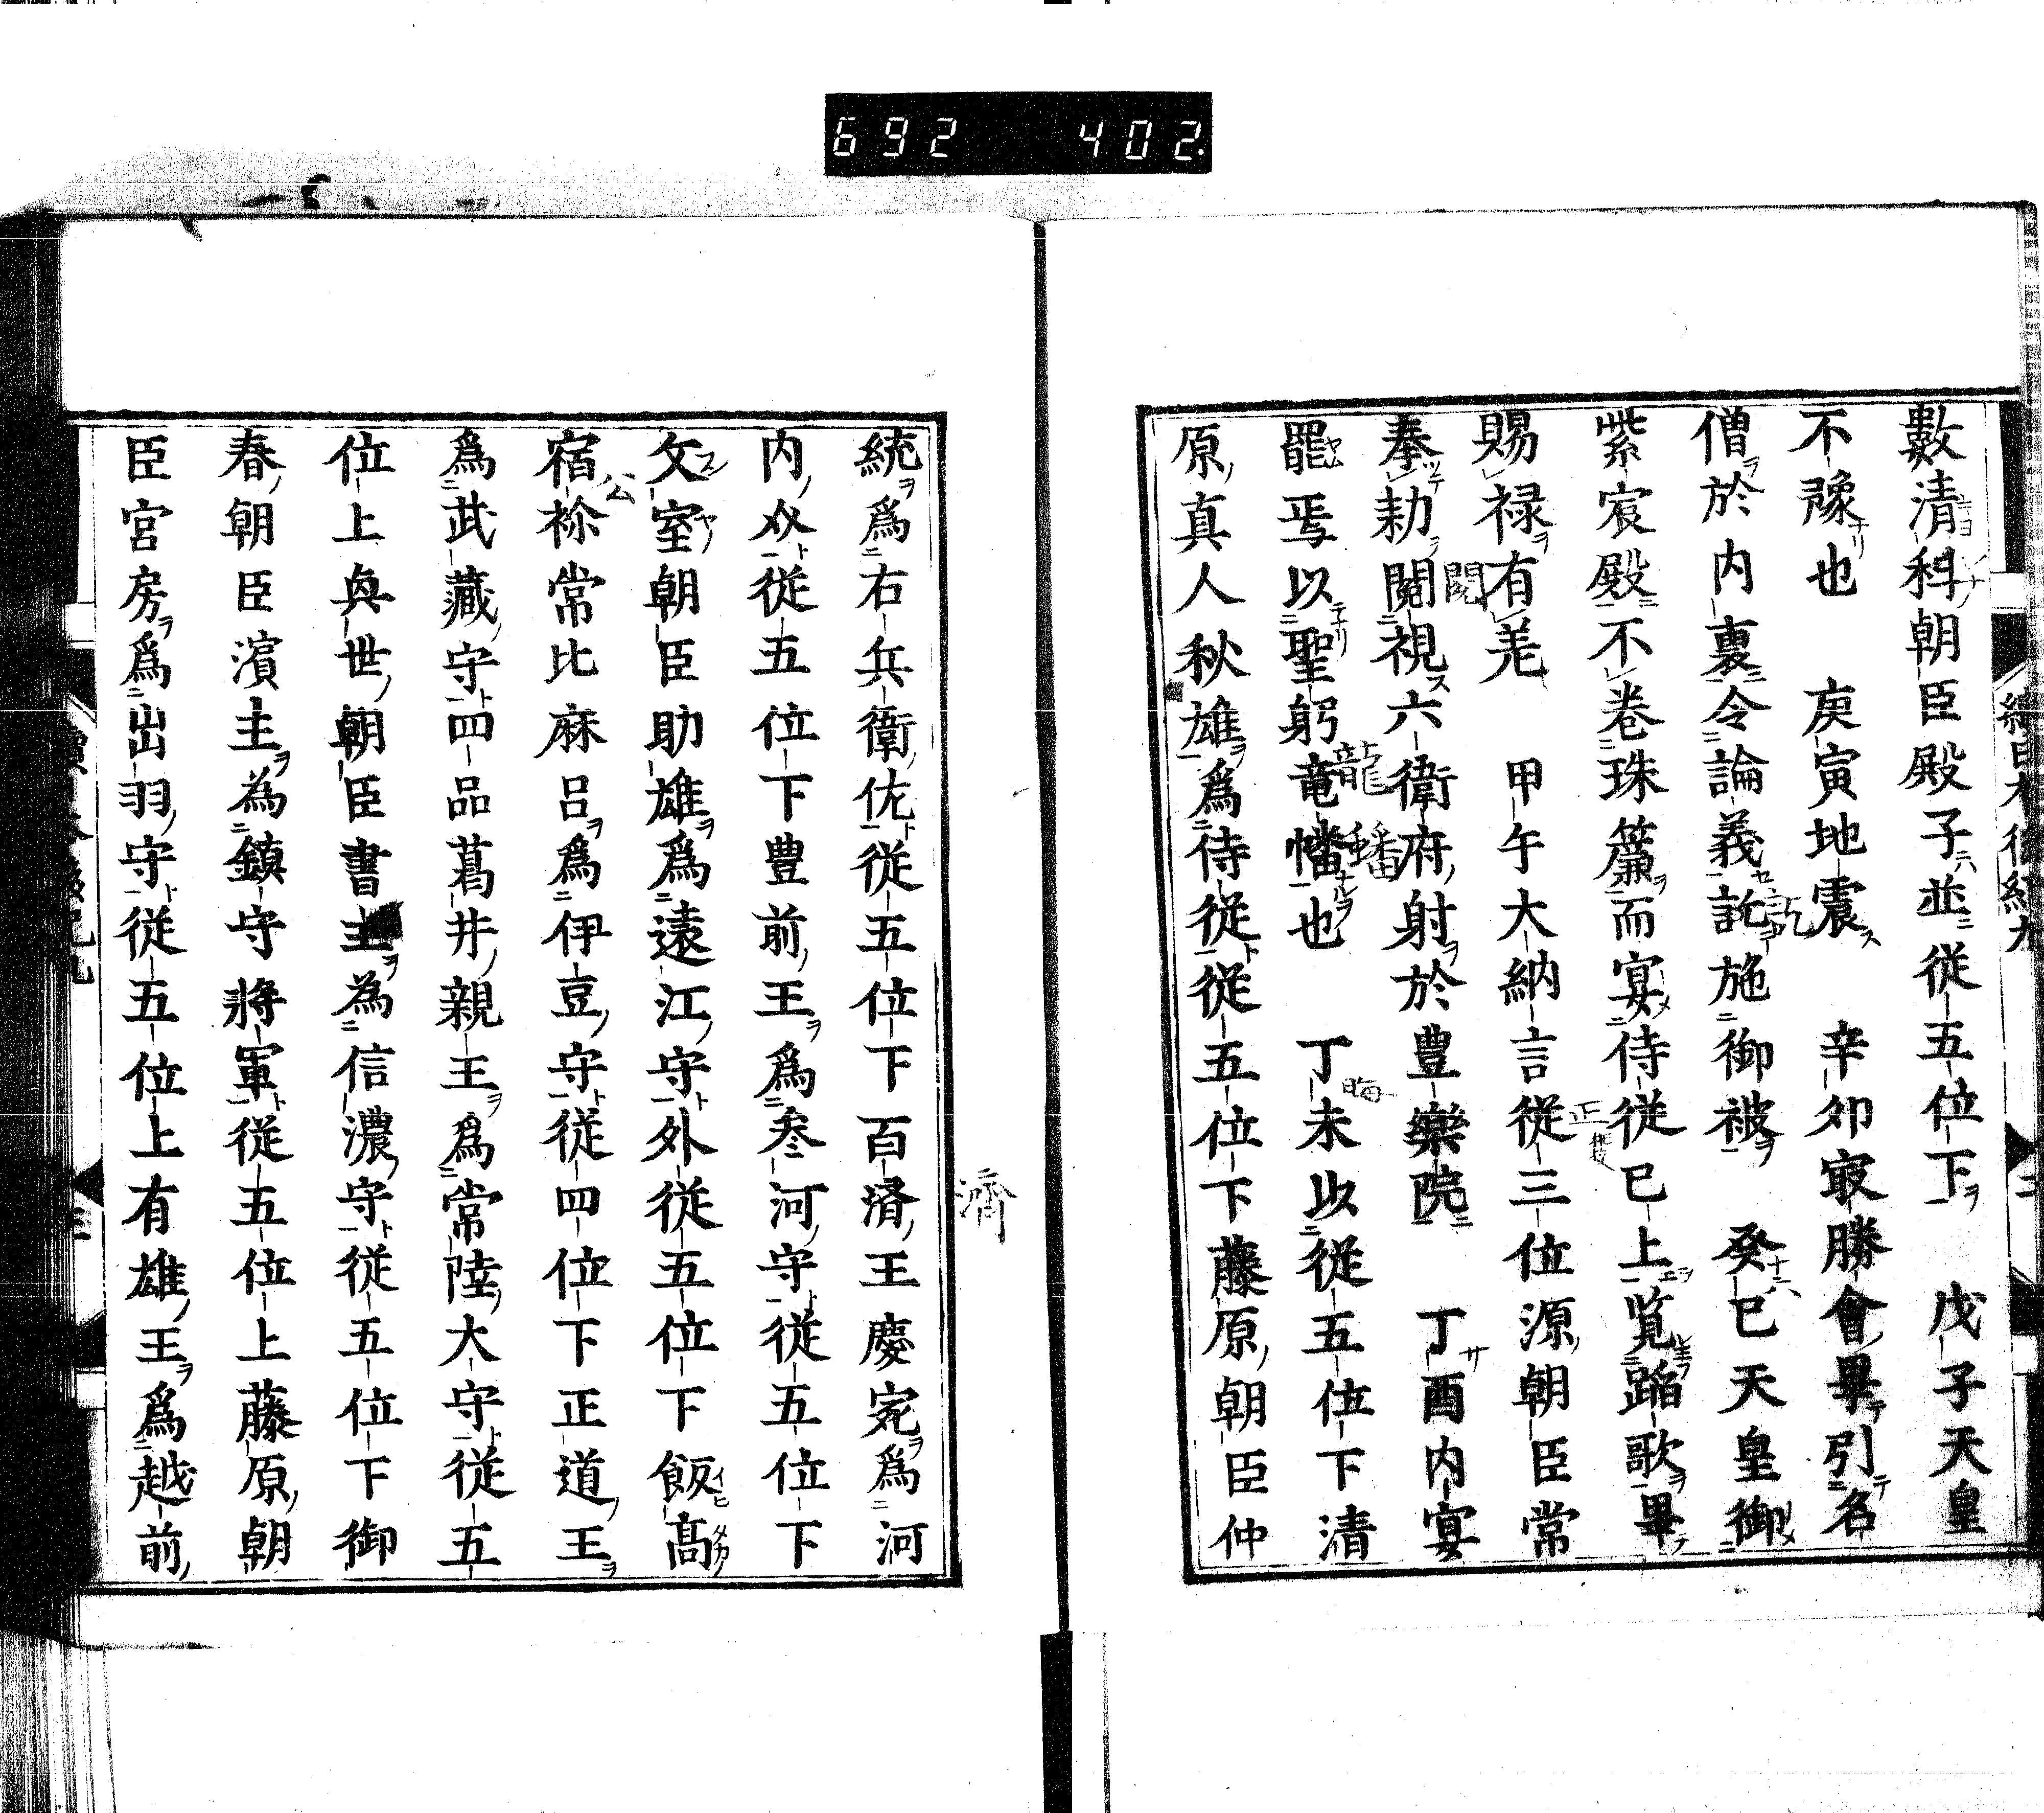 692 402.
數清科朝臣殿子並従五位下 戊子天皇
不豫也 庚寅地震 辛卯㝡勝會畢引名
僧於内裏令論義訖施御被 癸巳天皇御
紫宸殿不卷珠簾而宴侍従已上覧蹈歌畢
賜禄有差 甲午大納言従三位源朝臣常
奉勅閲視六衛府射於豊樂院 丁酉内宴
罷焉以聖躬竜幡也 丁未以従五位下清
原真人秋雄爲侍従従五位下藤原朝臣仲
統爲右兵衛佐従五位下百済王慶宛爲河
内介従五位下豊前王爲叅河守従五位下
文室朝臣助雄爲遠江守外従五位下飯髙
宿祢常比麻呂爲伊豆守従四位下正道王
爲武藏守四品葛井親王爲常陸大守従五
位上眞世朝臣書主為信濃守従五位下御
春朝臣濵主為鎮守將軍従五位上藤原朝
臣宮房爲出羽守従五位上有雄王爲越前